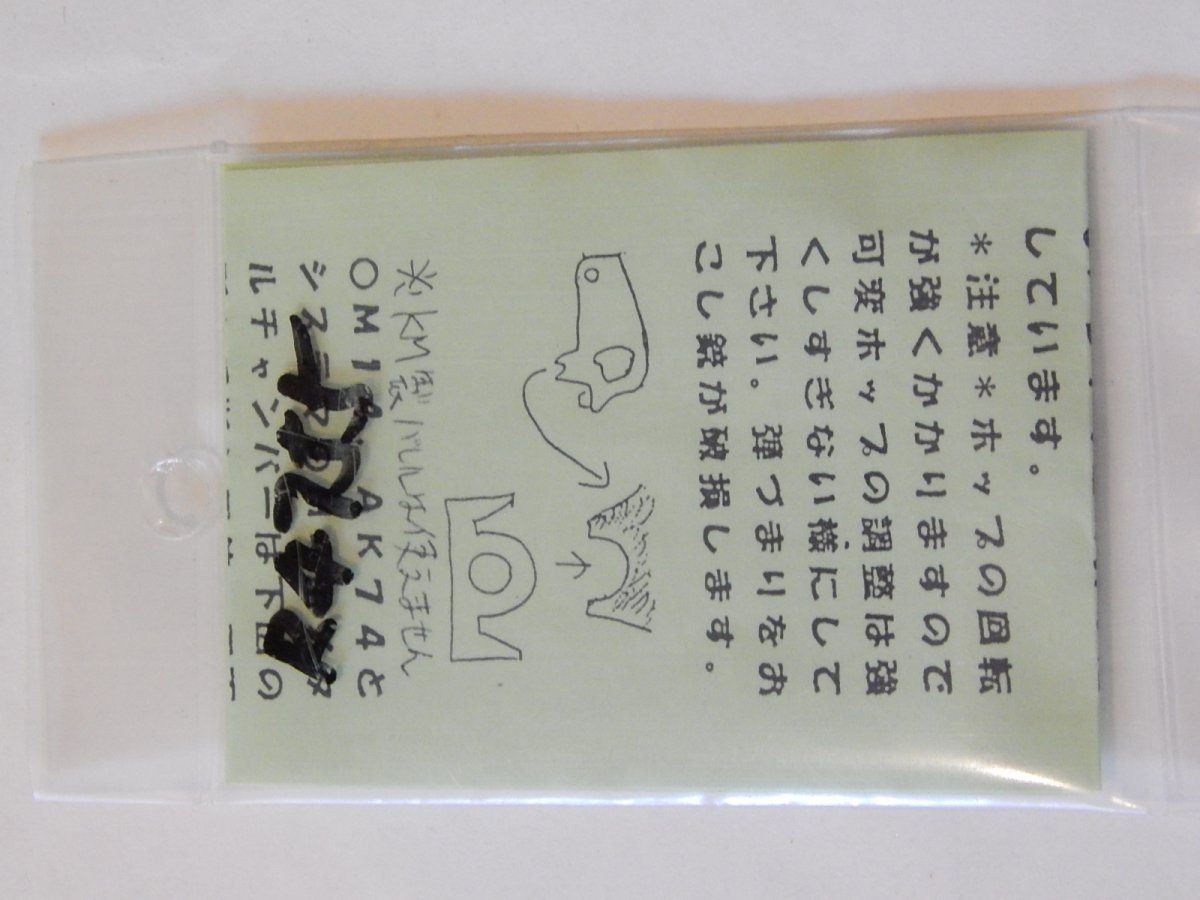 しています。
*注意*ホップの回転
が強くかかりますので
可変ホップの調整は強
くしすぎない様にして
下さい。弾づまりをお
こし銃が破損します。
※KM製バレルは使えません
OM1 AK74と
シス
ルチャンバーは の